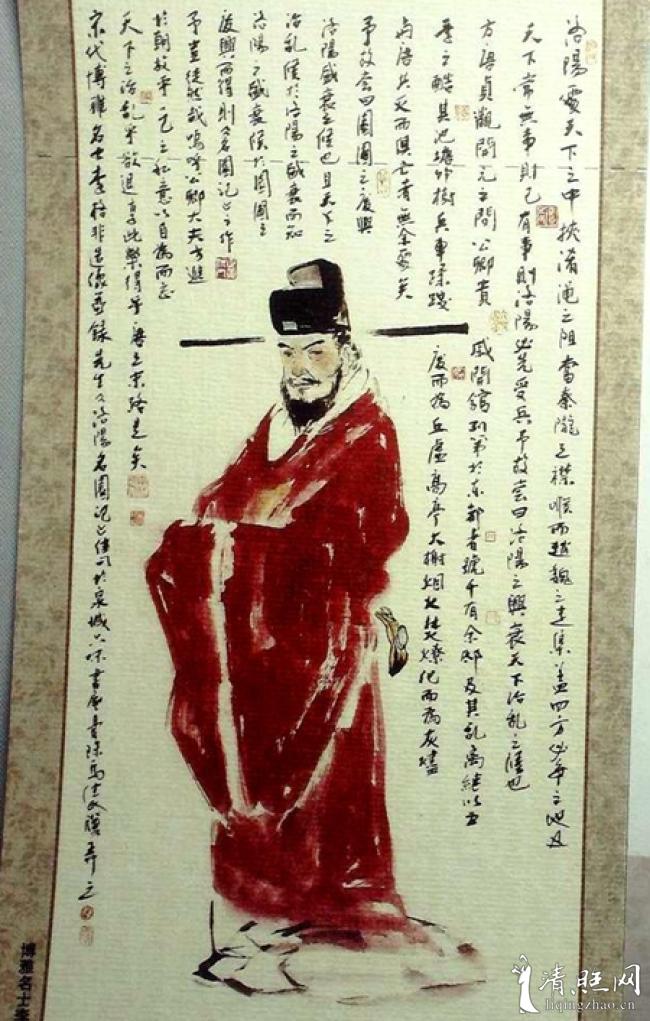 洛陽處天下之中挾淆黽之阻當秦隴之襟喉而趙魏之走集盖四方必争之地也
天下常無事則已有事則洛陽必先受兵予故嘗曰洛陽之興衰天下治乱之候也
方唐貞觀開元之間公卿貴戚開館列第於东都者號千有余邸及其乱离继以五
季之酷其池塘竹樹兵車蹂蹴廢而為丘虛高亭大榭烟火焚燎化而為灰燼
与唐共灭而俱亡者無余處矣
予故嘗曰園圃之廢興
洛陽盛衰之候也且天下之
治乱候於洛陽之盛衰而知
洛陽之盛衰候於園圃之
廢興而得則名園記之作
予豈徒然哉嗚呼公卿大夫方進
於朝放乎一己之私意以自為而忘
天下之治乱乎欲退享此樂得乎唐之末路是矣
宋代博雅名士李格非造像并録先生之洛陽名園記之佳句於泉城
博雅名士李
清照网
liqingzhao.cn